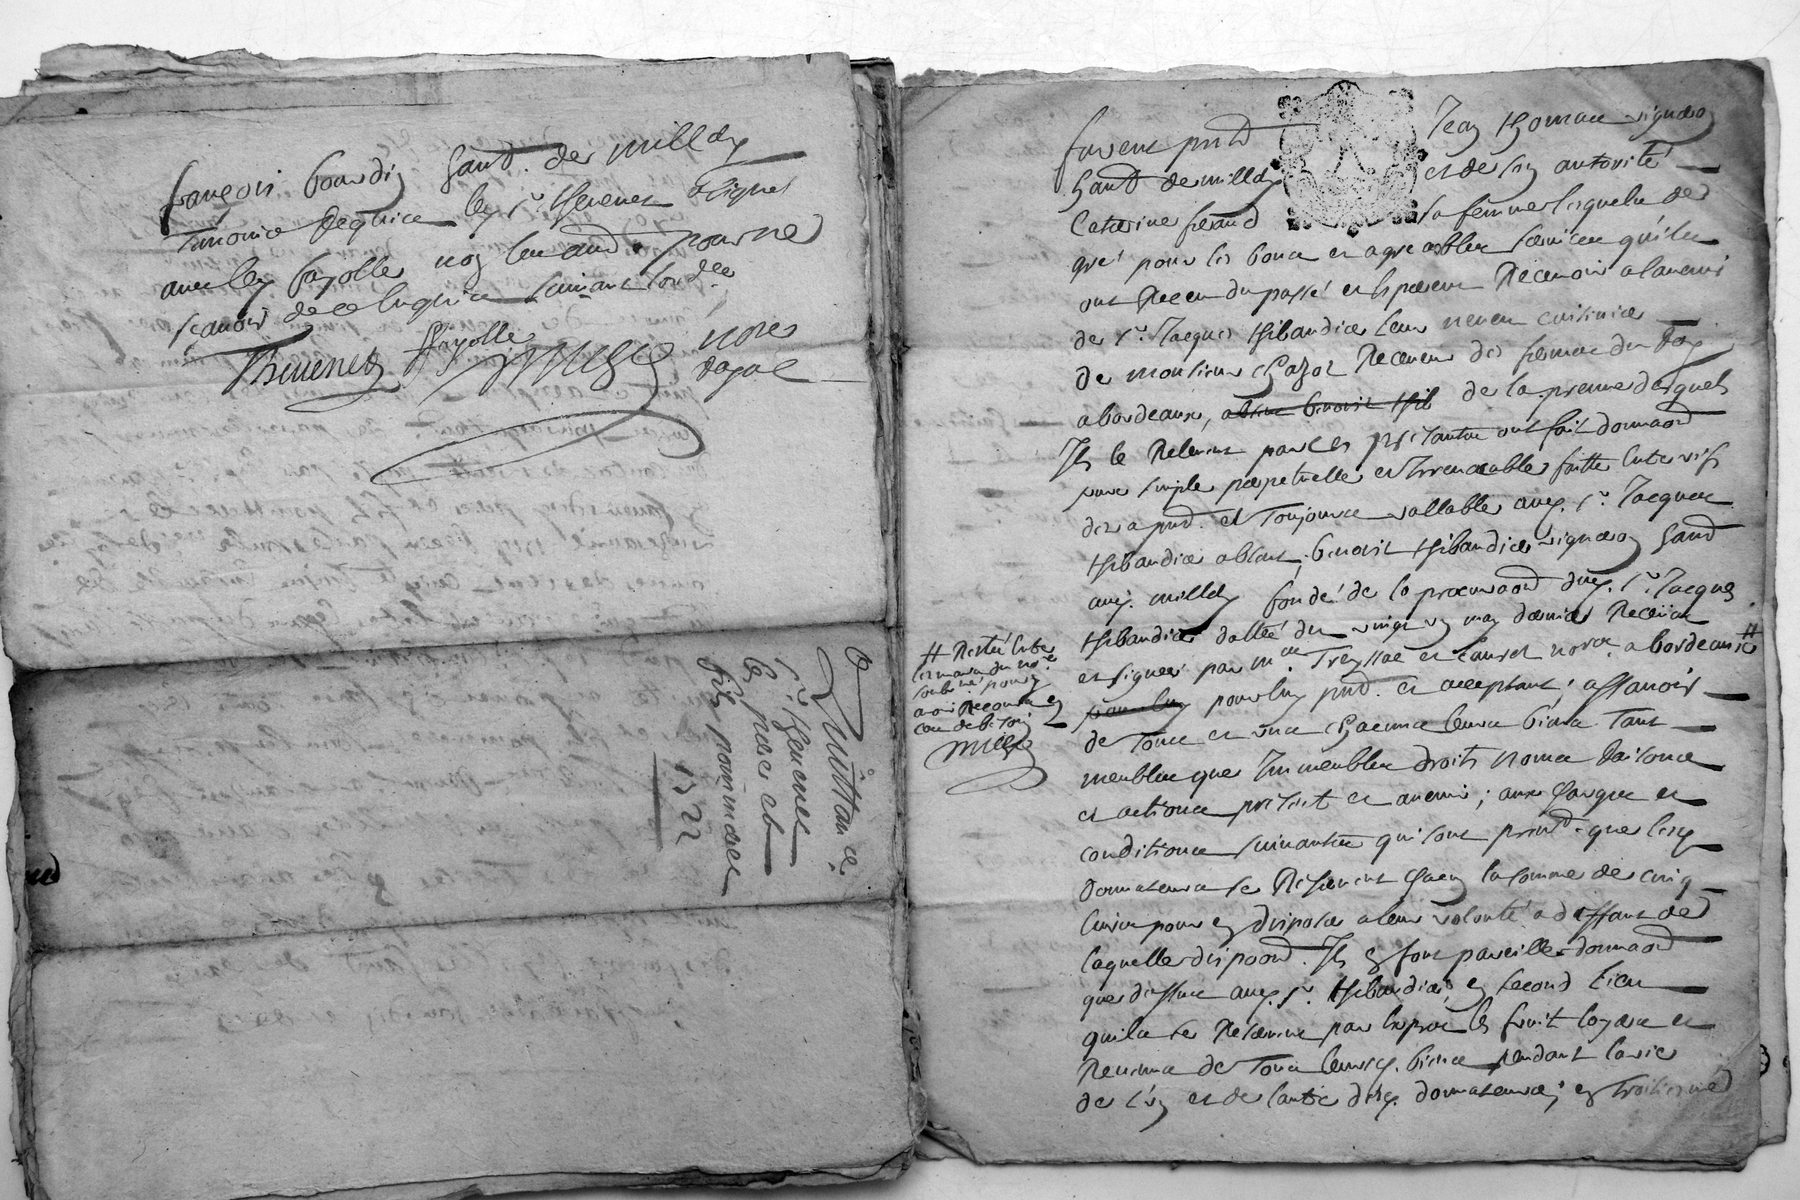 françois bourdin habt. de milly
temoins requis led. sr. thevenet a signé
avec led. fayolle non le aud. pour ne
scavoir de ce enquis suivant lord.ce
Thevenet fayolle
nore
royal
Quittance
sr. thevenet
le pere et
fils pommier
1722
furent pnt Jean thomas vigneron
habt de milly et de son autorité
Catherine ferand sa femme lesquels de
gré pour les bons et agreables services qu'ils
ont Receu du passé et esperent Recevoir a lavenir
de sr. Jacques thibaudier leur neveu cuisinier
de monsieur Receveur des fermes du Roy
a bordeaux, de la preuve desquels
Ils le Relevent par ces presentes ont fait donnaon
pure simple perpetuelle et Irrevocable faitte entre vifs
des a pnt. et Toujours vallable aud. sr. Jacques
thibaudier absent, benoist thibaudier vigneron habt
aud. milly fondé de la procuraon dud. sr. Jacques
thibaudier dattée du vingt un may dernier Receüe
et signée par mes. Treyssac et nores. a bordeaux #
pour luy pnt. et acceptant, assavoir
de Tous et uns chacuns leurs biens Tant
meubles que Immeubles droits noms Raisons
et actions present et avenir; aux charges et
conditions suivantes qui sont premt. que lesd.
donnateurs se Reservent chacun la somme de cinq
livres pour en disposer a leur volonté a deffaut de
laquelle dispoon. Ils en font pareille donnaon
que dessus aud. sr. thibaudier, en second lieu
quils se Reservent par exprès les fruit loyers et
Revenus de Tous leursd. biens pendant la vie
de l'un et de lautre desd. donnateurs; en troisieme
# Resté entre
les mains du nore.
soubsné pour y
avoir Recours en
cas de besoin